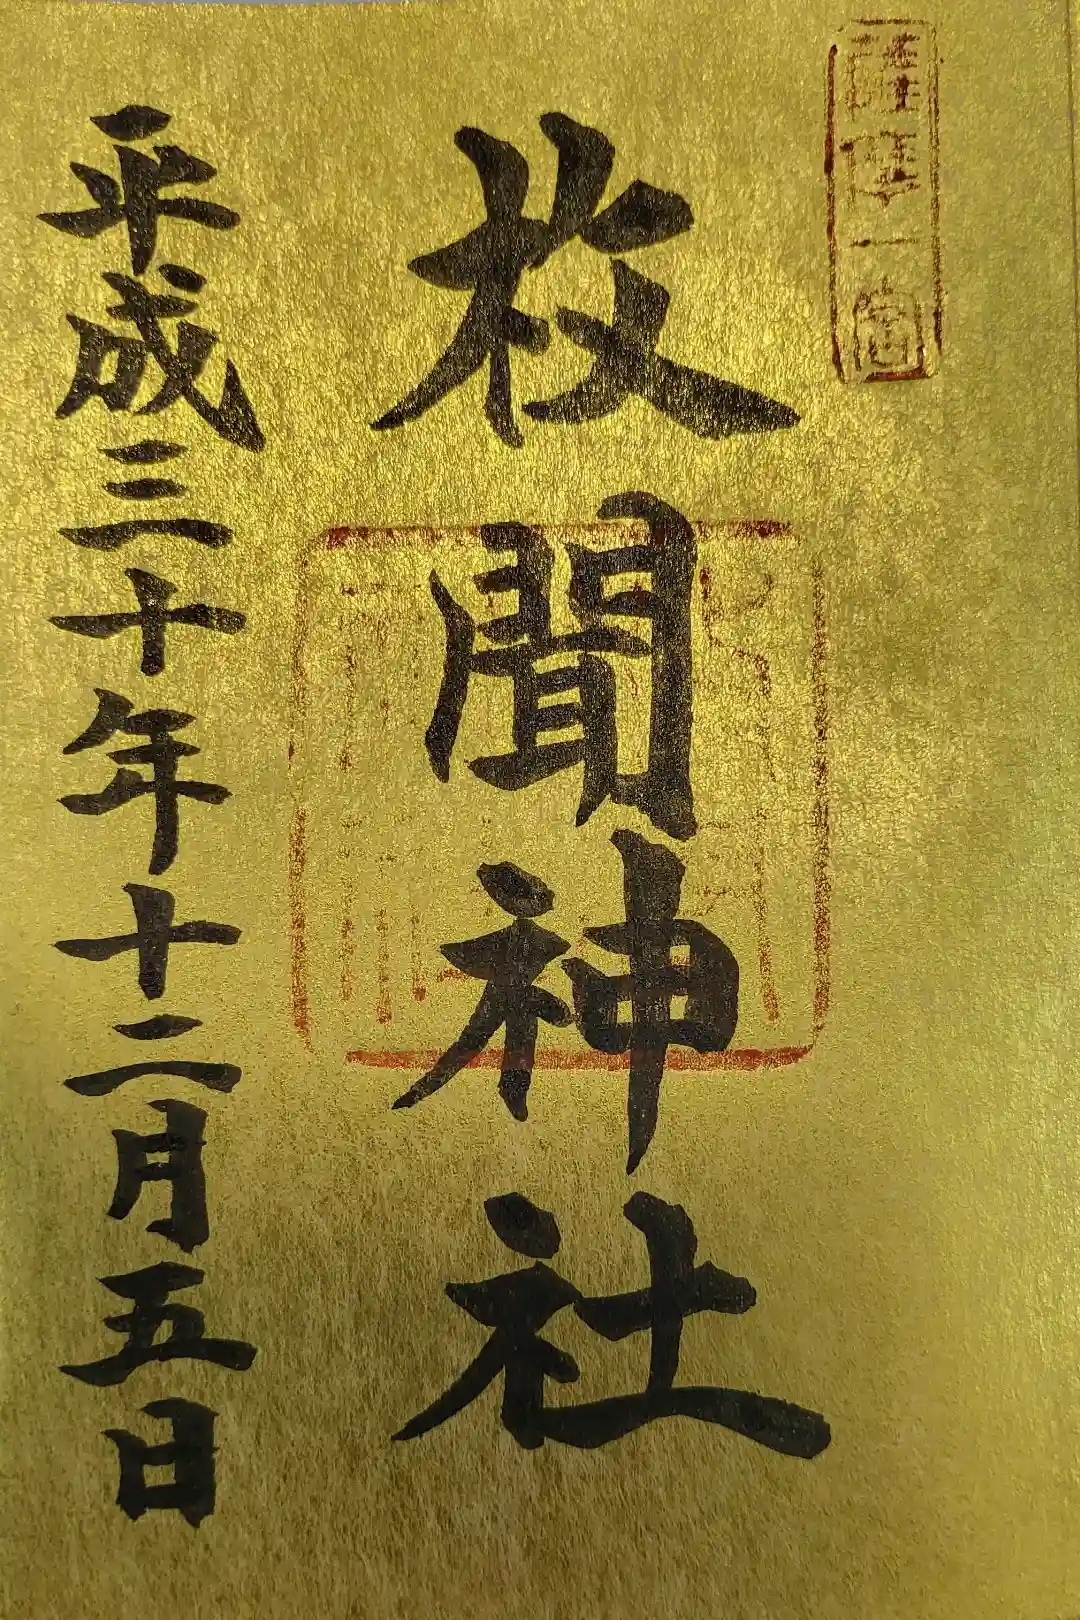 薩摩一宮
枚聞神社
平成三十年十二月五日